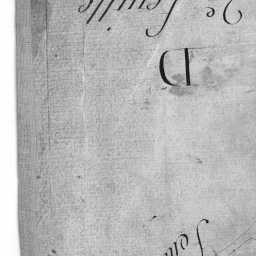 D
2e feuille